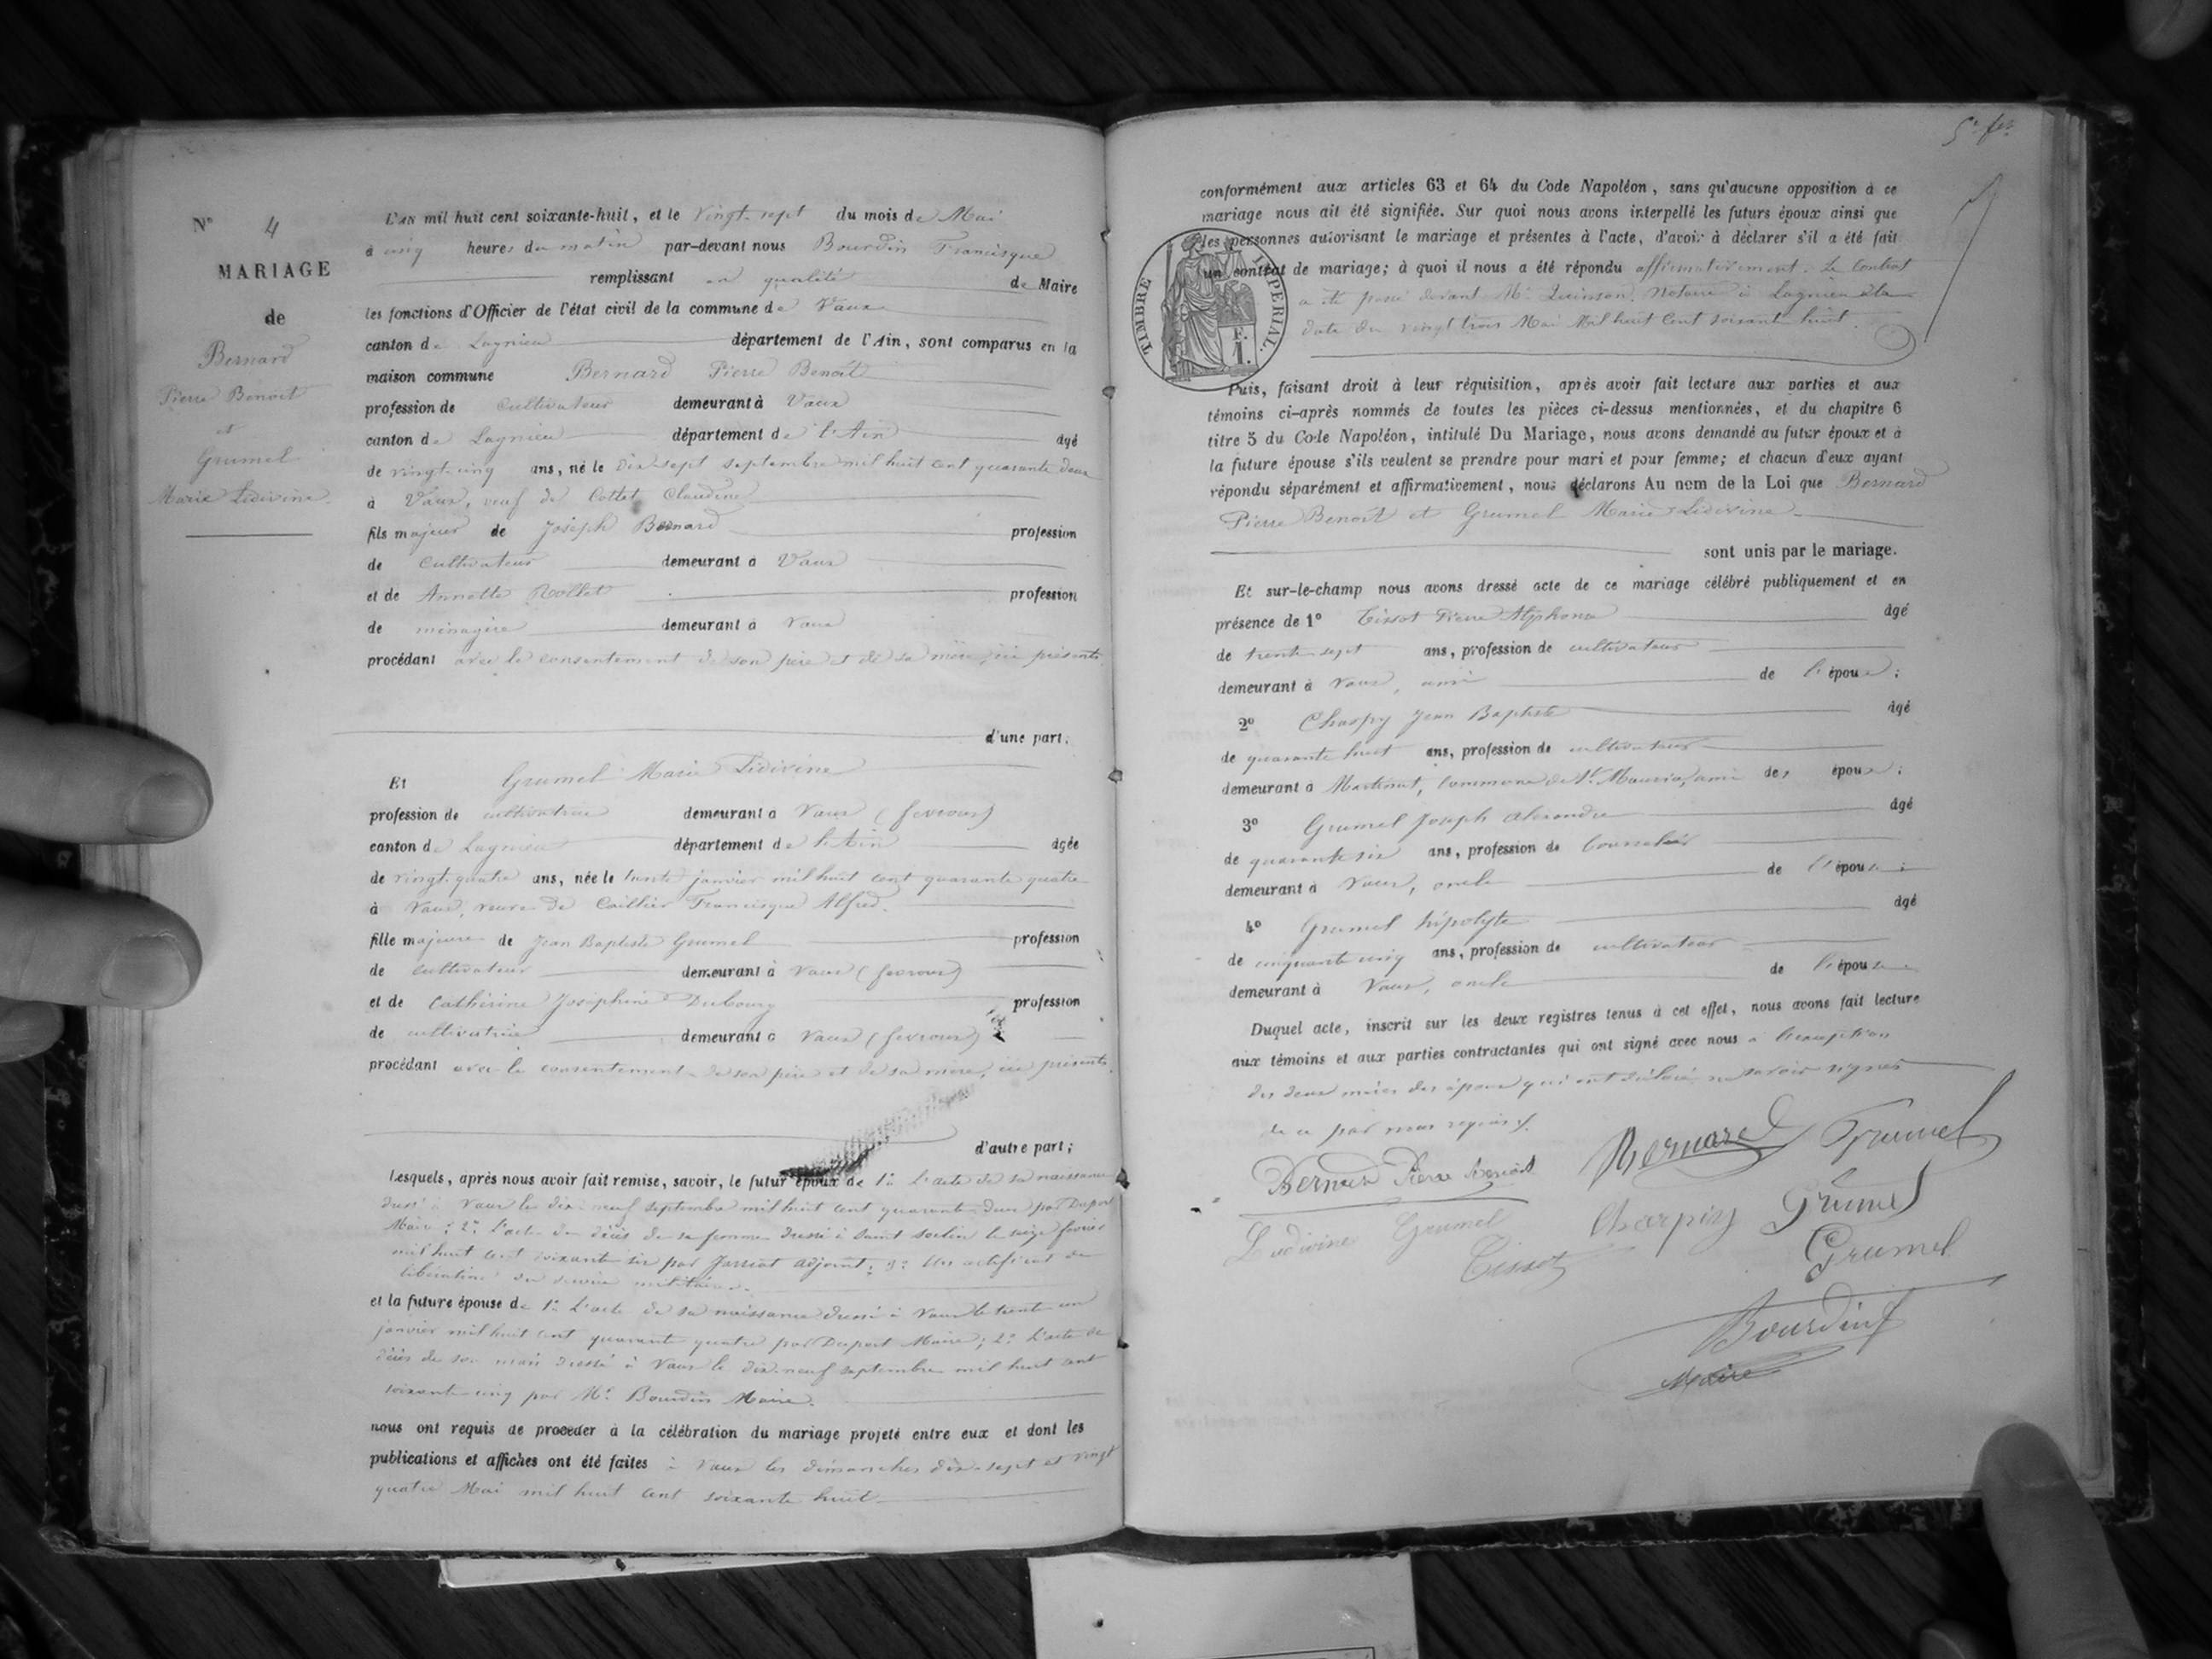 N° 4
MARIAGE
de
Bernard
Pierre Benoit
et
Grumel
Marie Lidivine
L'AN mil huit cent soixante-huit, et le vingt-sept du mois de Mai
à cinq heures du matin par-devant nous Bourdin Francisque
remplissant en qualité de Maire
les fonctions d'Officier de l'état civil de la commune de Vaux
canton de Lagnieu département de l'Ain, sont comparus en la
maison commune Bernard Pierre Benoît
profession de cultivateur demeurant à Vaux
canton de Lagnieu département de l'Ain âgé
de vingt-cinq ans, né le dix-sept septembre mil huit cent quarante deux
à Vaux, veuf de Cottet Claudine
fils majeur de Joseph Bernard profession
de cultivateur demeurant à Vaux
et de Annette Rollet profession
de ménagère demeurant à Vaux
procédant avec le consentement de son père et de sa mère, ici présents
d'une part;
Et Grumel Marie Lidivine
profession de cultivatrice demeurant à Vaux (fevrours)
canton de Lagnieu département de l'Ain âgée
de vingt quatre ans, née le trente janvier mil huit cent quarante quatre
à Vaux, veuve de Caillier Francisque Alfred.
fille majeure de Jean Baptiste Grumel profession
de cultivateur demeurant à Vaux (fevrours)
et de Cathérine Joséphine Dubourg profession
de cultivatrice demeurant à Vaux (fevrours)
procédant avec le consentement de son père et de sa mère, ici présents.
d'autre part;
Lesquels, après nous avoir fait remise, savoir, le futur époux de 1° L'acte de sa naissance
dressé à Vaux le dix-neuf septembre mil huit cent quarante-deux par Duport
Maire; 2° l'acte de décès de sa femme dressé à Saint Sorlin le seize février
mil huit cent soixante six par Jarriat adjoint; 3° Un certificat de
libération du service militaire.
et la future épouse de 1° L'acte de sa naissance dressé à Vaux le trente un
janvier mil huit cent quarante quatre par Duport Maire; 2° L'acte de
décès de son mari dressé à Vaux le dix-neuf septembre mil huit cent
soixante cinq par Mr Bourdin Maire.
nous ont requis de procéder à la célébration du mariage projeté entre eux et dont les
publications et affiches ont été faites à Vaux les dimanches dix-sept et vingt
quatre Mai mil huit cent soixante huit
5e fet
conformément aux articles 63 et 64 du Code Napoléon, sans qu'aucune opposition à ce
mariage nous ait été signifiée. Sur quoi nous avons interpellé les futurs époux ainsi que
les personnes autorisant le mariage et présentes à l'acte, d'avoir à déclarer s'il a été fait
un contrat de mariage; à quoi il nous a été répondu affirmativement. Le Contrat
a été passé devant Me Quinson, Notaire à Lagnieu à la
date du vingt trois Mai Mil huit Cent soixante huit.
TIMBRE IMPERIAL.
F.
1.
Puis, faisant droit à leur réquisition, après avoir fait lecture aux parties et aux
témoins ci-après nommés de toutes les pièces ci-dessus mentionnées, et du chapitre 6
titre 5 du Code Napoléon, intitulé Du Mariage, nous avons demandé au futur époux et à
la future épouse s'ils veulent se prendre pour mari et pour femme; et chacun d'eux ayant
répondu séparément et affirmativement, nous déclarons Au nom de la Loi que Bernard
Pierre Benoît et Grumel Marie Lidivine
sont unis par le mariage.
Et sur-le-champ nous avons dressé acte de ce mariage célébré publiquement et en
présence de 1° Tissot Pierre Alphonse âgé
de trente-sept ans, profession de cultivateur
demeurant à Vaux, ami de l'épouse;
2° Charpy Jean Baptiste âgé
de quarante huit ans, profession de cultivateur
demeurant à Martinat, Commune de St Maurice, ami des époux;
3° Grumel Joseph Alexandre âgé
de quarante six ans, profession de Bourrelier
demeurant à Vaux, oncle de l'épouse;
4° Grumel hipolyte âgé
de cinquante cinq ans, profession de cultivateur
demeurant à Vaux, oncle de l'épouse
Duquel acte, inscrit sur les deux registres tenus à cet effet, nous avons fait lecture
aux témoins et aux parties contractantes qui ont signé avec nous à l'exception
des deux mères des époux qui ont déclaré ne savoir signer
de ce par nous requis.
Bernard Pierre Benoit Bernard Grumel
Ludivine Grumel Charpiy Grumel
Tissot Grumel
Bourdin
Maire